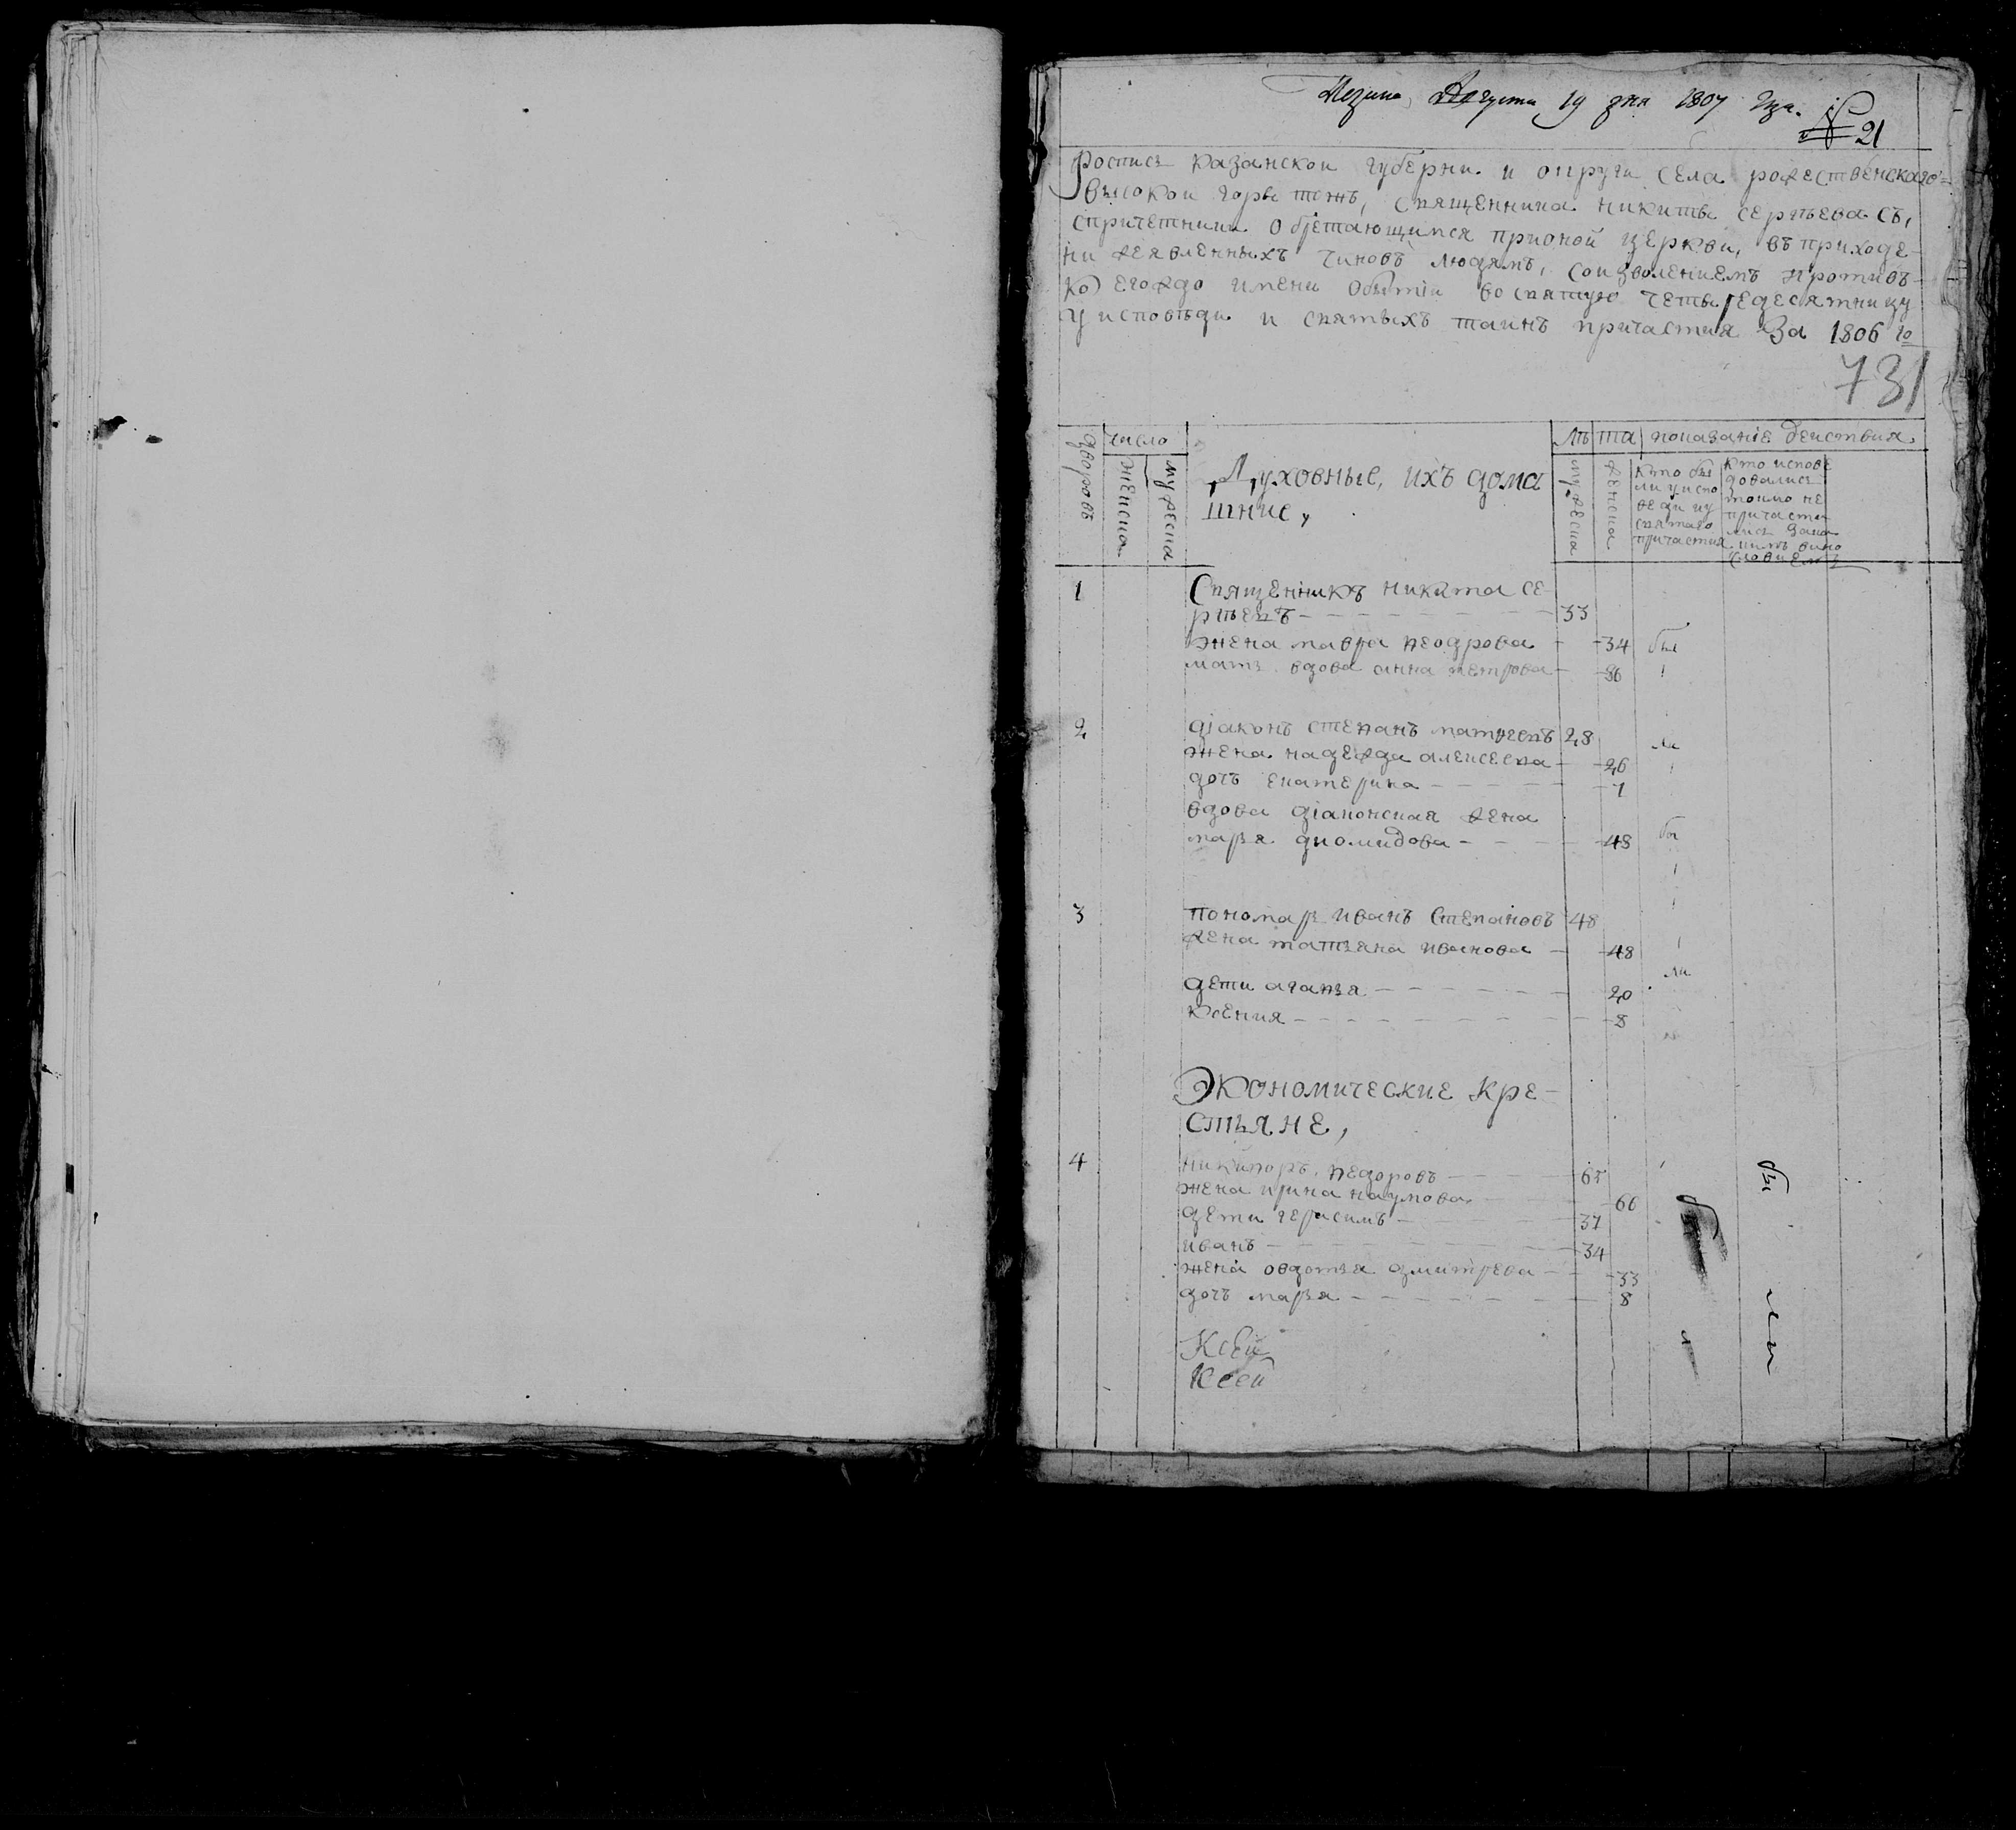 Августа 19 дня 1807 года.
№ 21
Роспись казанскои губерни и округи села рожественскаго
высокои горы тожъ, священника никиты сергѣева съ,
спричетники обретающимся прионои церкви, въ приходе
ни жеявленныхъ чиновъ людямъ, соизволениемъ противъ
коегождо имени обытіи во святую четыредесятницу
у исповѣди и святыхъ таинъ причастия За 1806 го
731
дворовъ число женска мужеска
Духовные, ихъ дома
шние,
лѣта мужеска женска
показаніе деиствия
кто бы
ли у испо
веди и у
святаго
причастия
кто испове
довались
токмо не
причасти
лись
1 Священникъ никита се
ргѣевъ 33
жена мавра феодрова 34 бы
мать вдова анна петрова 86
2 діаконъ степанъ матвеевъ 28 ли
жена надежда алексеева 26
дочь екатерина 1
вдова діаконская жена
марья диомидова 48 бы
3 пономарь иванъ степановъ 48
жена татьяна иванова 48
ли
дети агафья 20
ксения 8
Экономические кре
стьяне,
4 никифоръ федоровъ 65 бы
жена ирина наумова 60
дети герасимъ 37
иванъ 34
жена овдотья дмитрева 33 ли
дочь марья 8